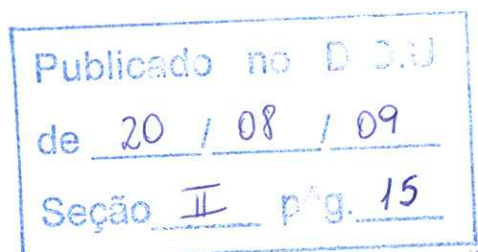 Publicado no D.O.U
de 20 / 08 / 09
Seção II pág. 15